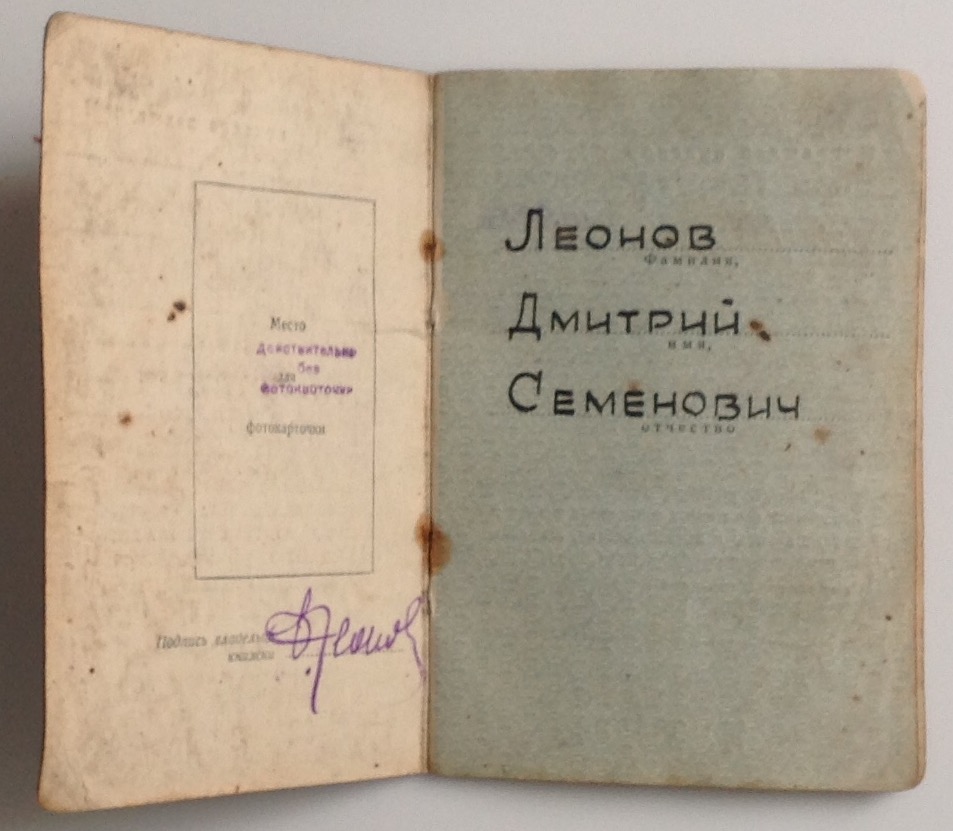 Место
Действительно
без
для
фотокарточки
фотокарточки
Подпись владельца
книжки
Д.Леонов
Леонов
Фамилия,
Дмитрий
имя,
Семенович
отчество